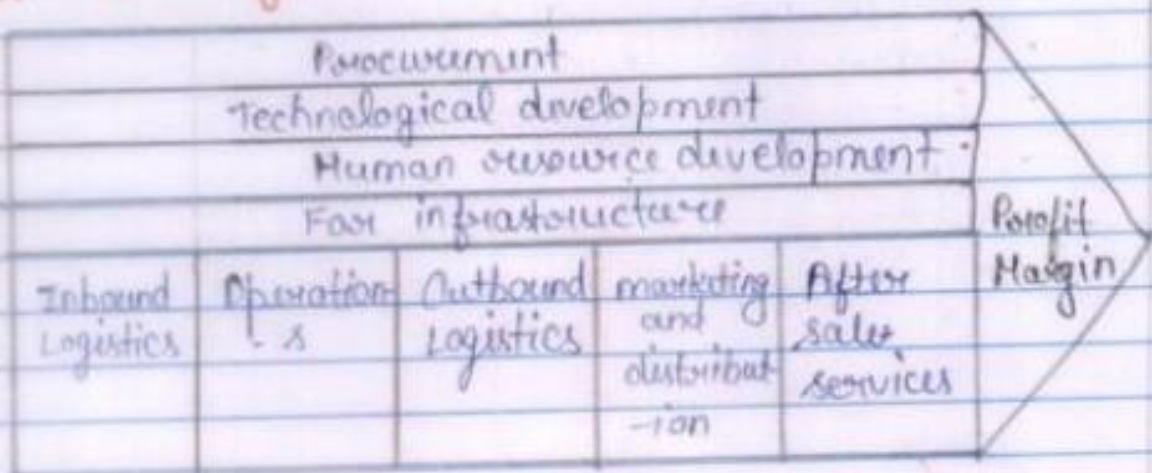 Procurement
Technological development
Human resource development
For infrastructure
Profit
Margin
Inbound
Logistics
Operation
s
Outbound
Logistics
marketing
and
distribut
-ion
After
sales
services